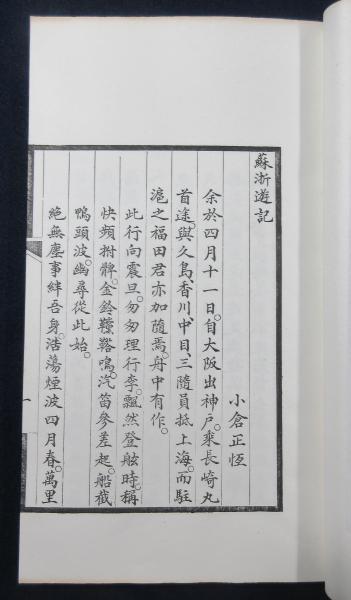 蘇浙遊記
小倉正恆
余於四月十一日。自大阪出神戶。乘長崎丸
首途。與久島、香川、中目、三隨員抵上海。而駐
滬之福田君亦加隨焉。舟中有作。
此行向震旦。匆匆理行李。飄然登舷時。稱
快頻拊髀。金鈴鞺鞳鳴。汽笛參差起。船截
鴨頭波。幽尋從此始。
絕無塵事絆吾身。浩蕩煙波四月春。萬里
一